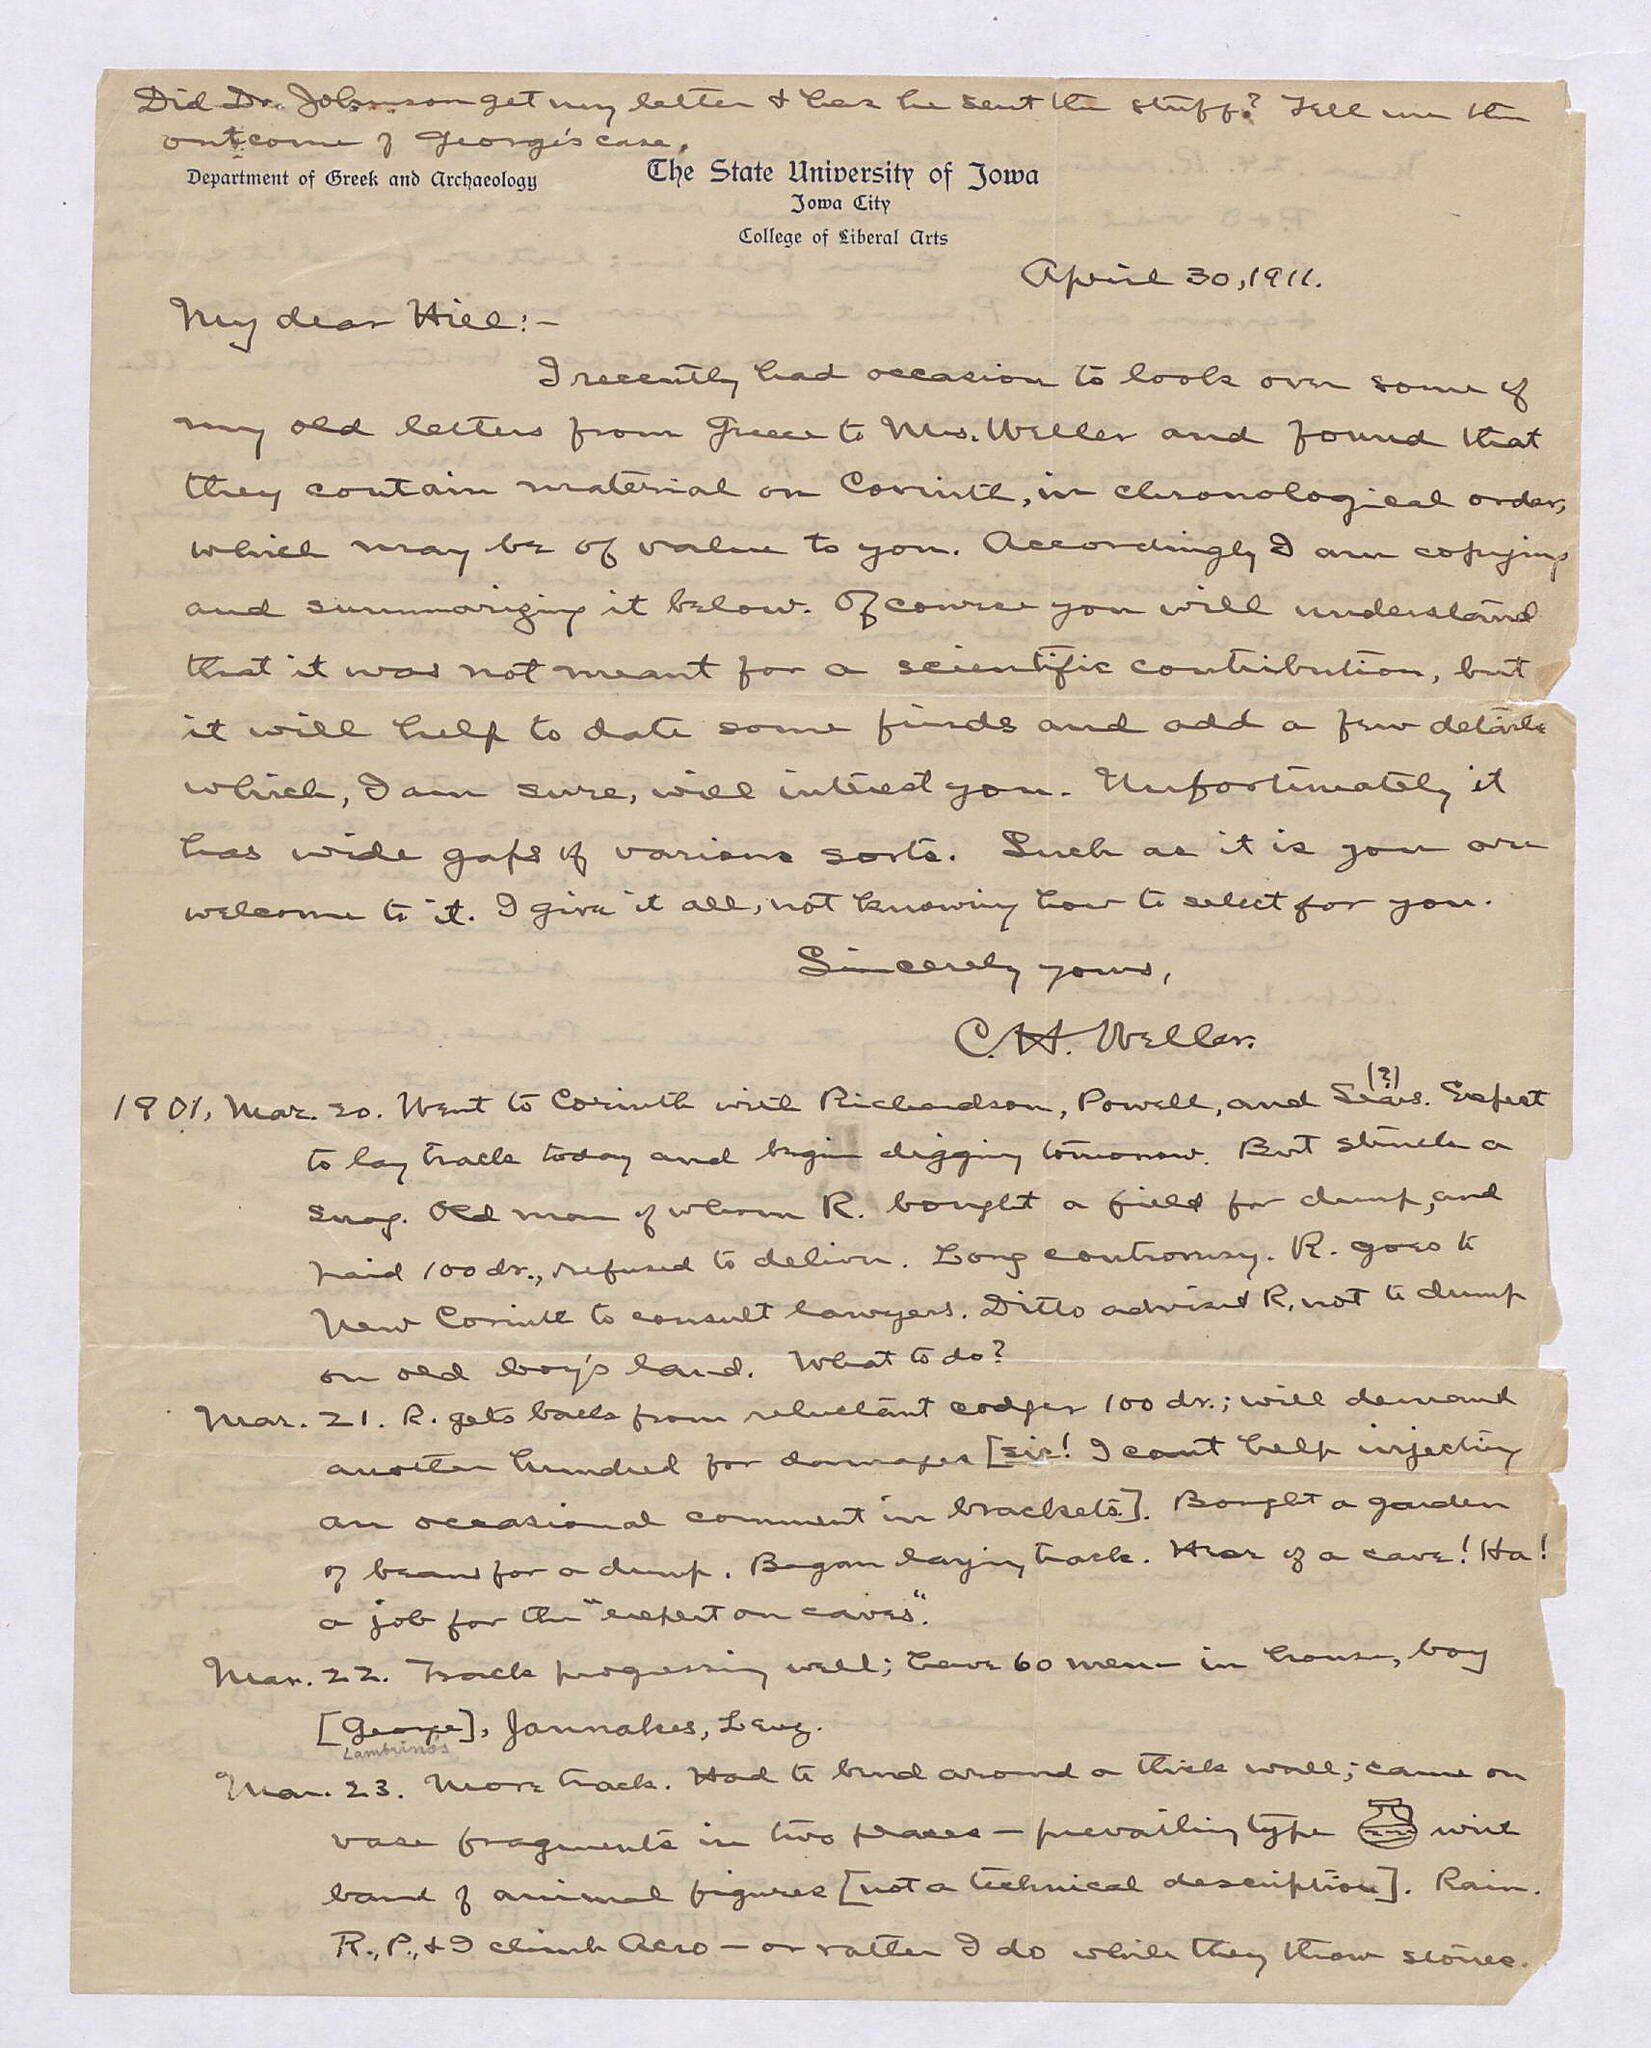 Did Dr. Johnson get my letter & has he sent the stuff? Tell me the
outcome of George's case.
Department of Greek and Archaeology
The State University of Iowa
Iowa City
College of Liberal Arts
April 30, 1911.
My dear Hill:-
I recently had occasion to look over some of
my old letters from Greece to Mrs. Weller and found that
they contain material on Corinth, in chronological order,
which may be of value to you. Accordingly I am copying
and summarizing it below. Of course you will understand
that it was not meant for a scientific contribution, but
it will help to date some finds and add a few details
which, I am sure, will interest you. Unfortunately it
has wide gaps of various sorts. Such as it is you are
welcome to it. I give it all, not knowing how to select for you.
Sincerely yours,
C. H. Weller.
1901, Mar. 20. Went to Corinth with Richardson, Powell, and Sears. (?) Expect
to lay track today and begin digging tomorrow. But struck a
snag. Old man of whom R. bought a field for dump, and
paid 100 dr., refused to deliver. Long controversy. R. goes to
New Corinth to consult lawyers. Ditto advised R. not to dump
on old boy's land. What to do?
Mar. 21. R. gets back from reluctant codger 100 dr.; will demand
another hundred for damages [sic! I can't help injecting
an occasional comment in brackets]. Bought a garden
of beans for a dump. Began laying track. Hear of a cave! Ha!
a job for the "expert on caves".
Mar. 22. Track progressing well; have 60 men – in house, boy
[George], Jannakes, Lenz.
Lambrino's
Mar. 23. More track. Had to bend around a thick wall; came on
vase fragments in two places – prevailing type with
band of animal figures [not a technical description]. Rain.
R., P., & I climb Acro – or rather I do while they throw stones.